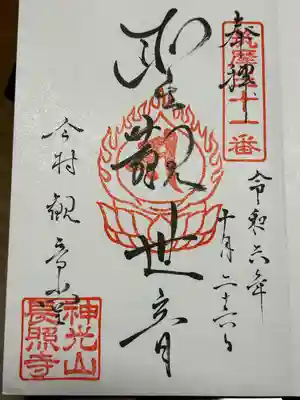 奉拝
十一番
令和六年
十月二十六日
聖観世音
今村観音堂
神光山
長照寺